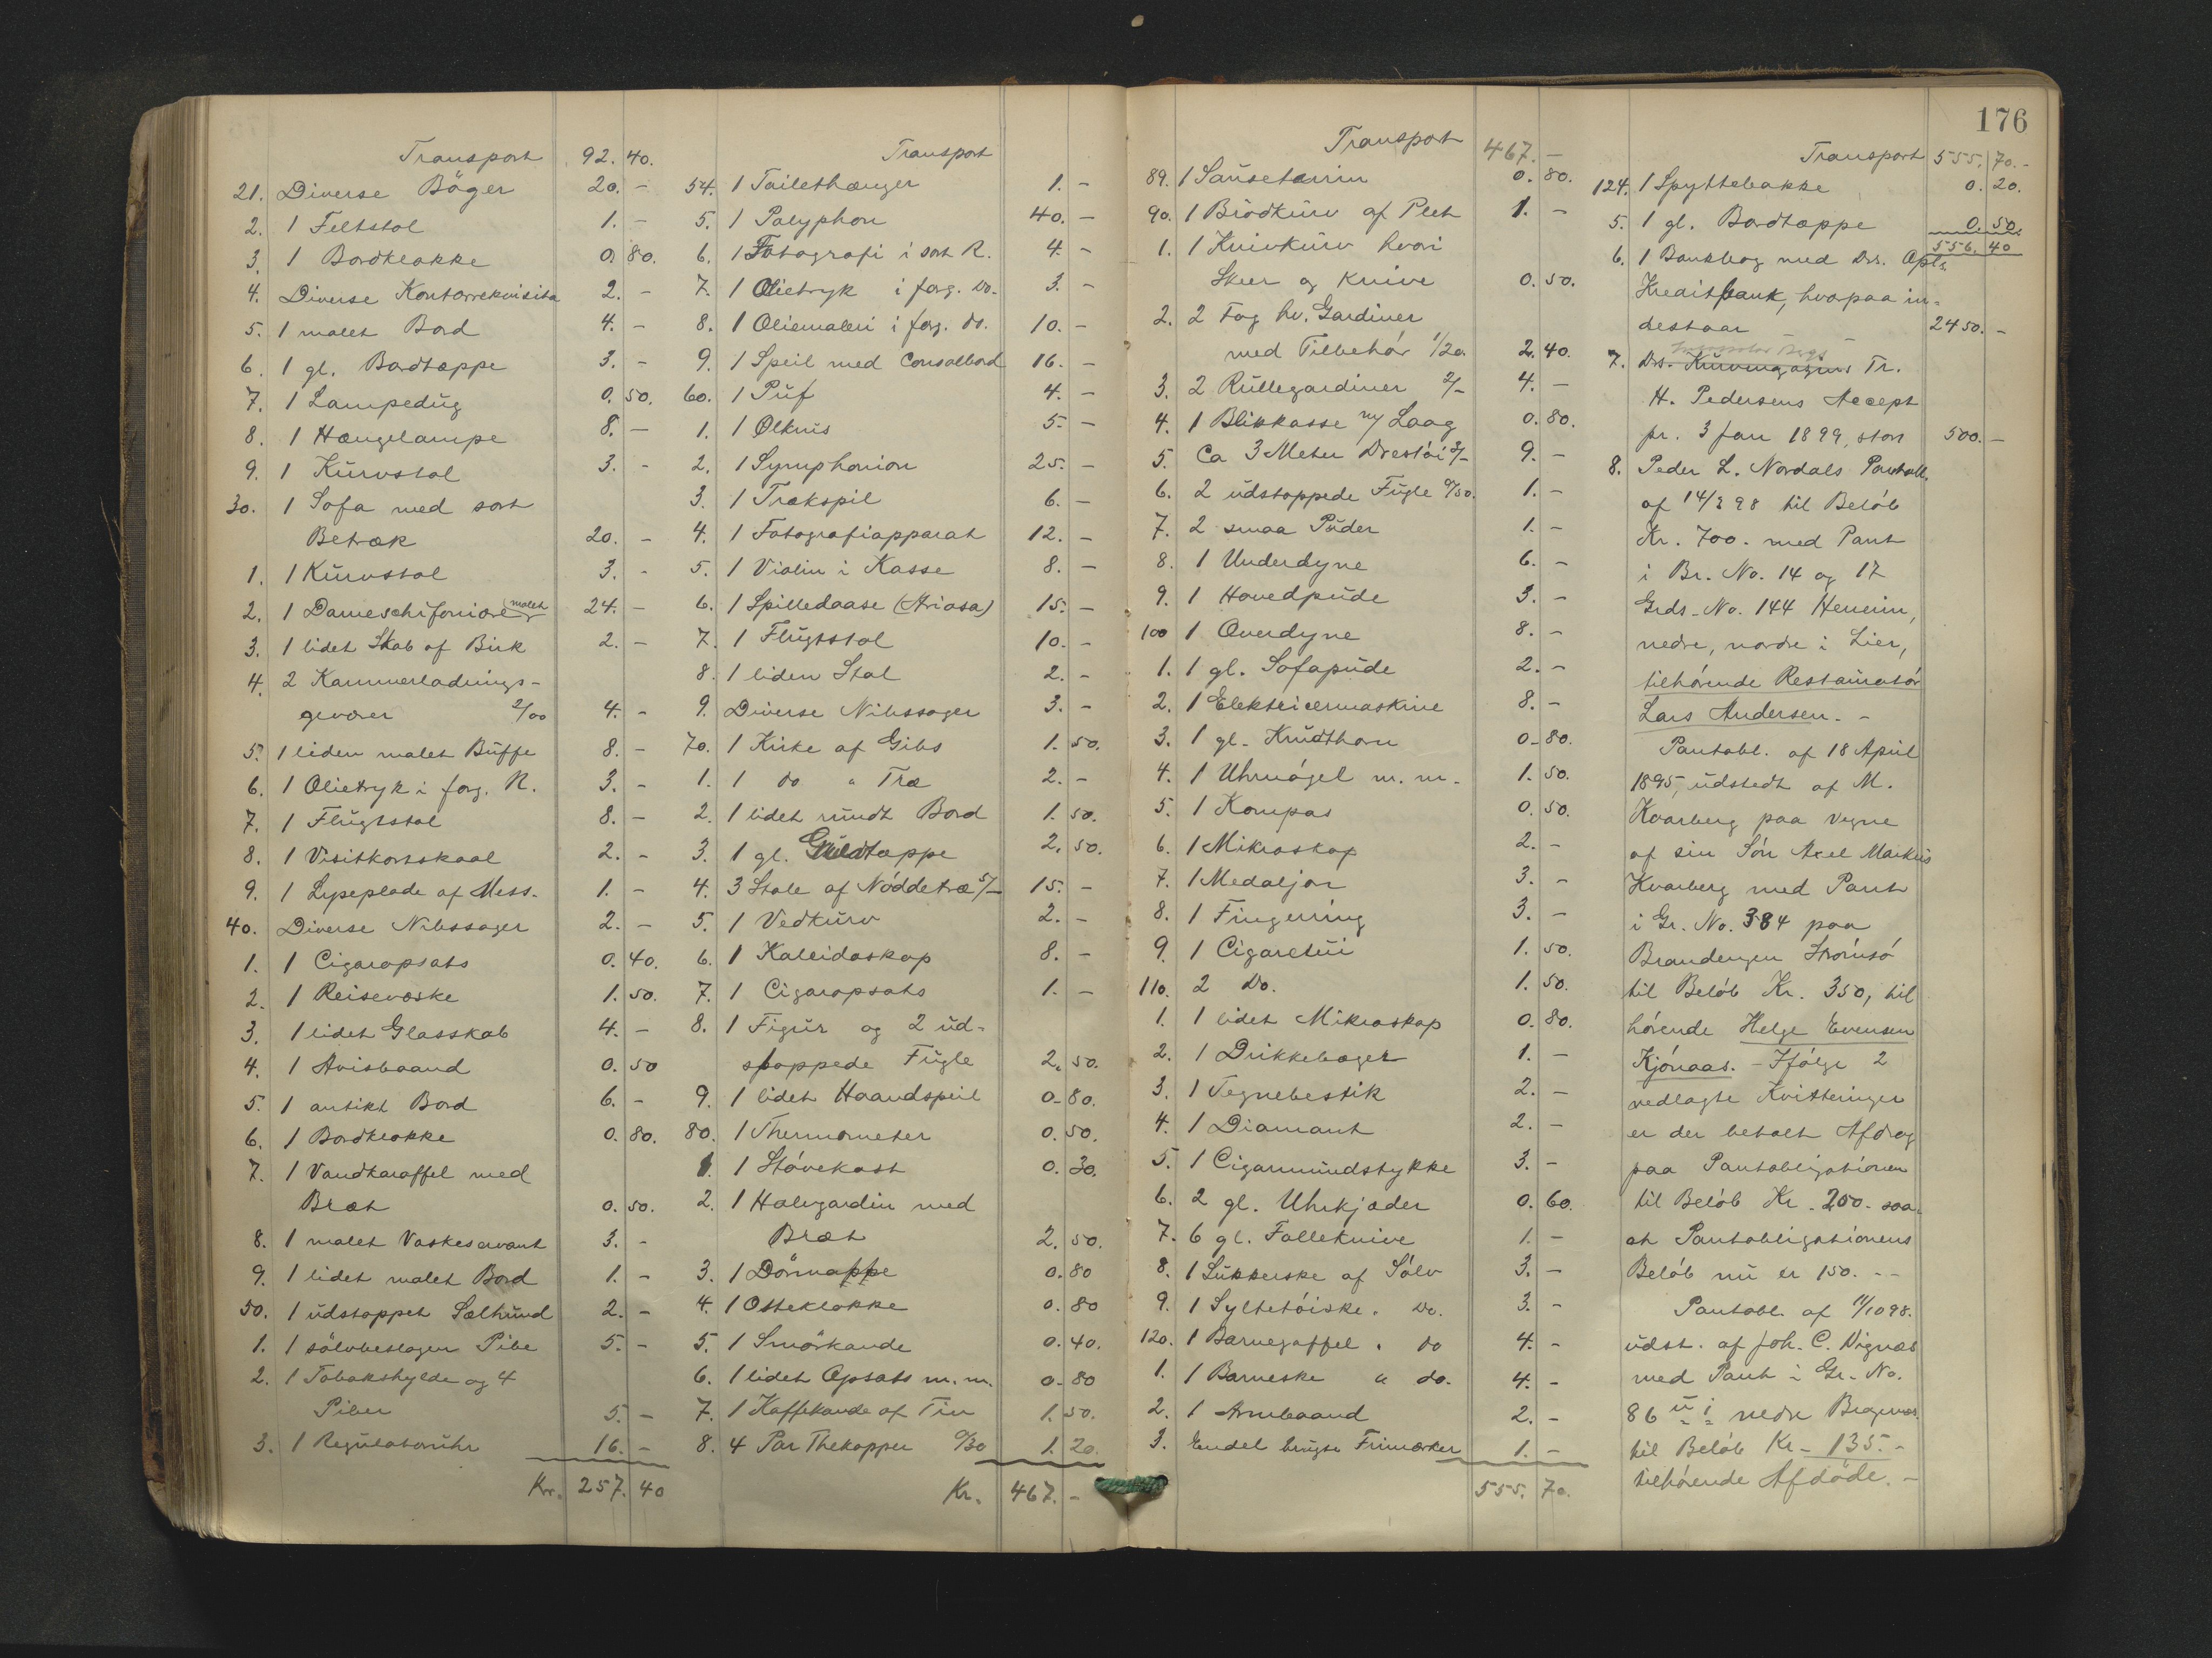 Transport 92. 40.
21. Diverse Böger 20. -
2. 1 Feltstol 1. -
3. 1 Bordklokke 0. 80.
4. Diverse Kontorrekvisita 2. -
5. 1 malet Bord 4. -
6. 1 gl. Bordtæppe 3. -
7. 1 Lampedug 0. 50.
8. 1 Hængelampe 8. -
9. 1 Kurvstol 3. -
30. 1 Sofa med sort
Betræk 20. -
1. 1 Kurvstol 3. -
2. 1 Dameschifoniere malet 24. -
3. 1 lidet Skab af Birk 2. -
4. 2 Kammerladnings-
geværer 2/00 4. -
5. 1 liden malet Buffe 8. -
6. 1 Olietryk i forg. R. 3. -
7. 1 Flugtstol 8. -
8. 1 Visitkortskaal 2. -
9. 1 Lyseplade af Mess. 1. -
40. Diverse Nibssager 2. -
1. 1 Cigaropsats 0. 40.
2. 1 Reisevæske 1. 50.
3. 1 lidet Glasskab 4. -
4. 1 Avisbaand 0. 50
5. 1 antikt Bord 6. -
6. 1 Bordklokke 0. 80.
7. 1 Vandkaraffel med
Bræt 0. 50.
8. 1 malet Vaskeservant 3. -
9. 1 lidet malet Bord 1. -
50. 1 udstoppet Sælhund 2. -
1. 1 sölvbeslagen Pibe 5. -
2. 1 Tobakshylde og 4
Piber 5. -
3. 1 Regulatoruhr 16. -
Kr. 257. 40
Transport
54. 1 Toilethænger 1. -
5. 1 Polyphon 40. -
6. 1 Fotografi i sort R. 4. -
7. 1 Olietryk i forg. Do. 3. -
8. 1 Oliemaleri i forg. do. 10. -
9. 1 Speil med Consolbord 16. -
60. 1 Puf 4. -
1. 1 Ølkrus 5. -
2. 1 Symphonion 25. -
3. 1 Trækspil 6. -
4. 1 Fotografiapparat 12. -
5. 1 Violin i Kasse 8. -
6. 1 Spilledaase (Ariosa) 15. -
7. 1 Flugtstol 10. -
8. 1 liden Stol 2. -
9. Diverse Nibssager 3. -
70. 1 Kirke af Gibs 1. 50.
1. 1 do " Træ 2. -
2. 1 lidet rundt Bord 1. 50.
3. 1 gl. Gulvtæppe 2. 50.
4. 3 Stole af Nøddetræ 5/- 15. -
5. 1 Vedkurv 2. -
6. 1 Kaleidoskop 8. -
7. 1 Cigaropsats 1. -
8. 1 Figur og 2 ud-
stoppede Fugle 2. 50.
9. 1 lidet Haandspeil 0. 80.
80. 1 Thermometer 0. 50.
1. 1 Stóvekost 0. 30.
2. 1 Halvgardin med
Bræt 2. 50.
3. 1 Dörmappe 0. 80
4. 1 Osteklokke 0. 80
5. 1 Smörkande 0. 40.
6. 1 lidet Opsats m.m. 0. 80
7. 1 Kaffekande af Tin 1. 50.
8. 4 Par Thekopper 0/30 1. 20.
Kr. 467. -
Transport 467. -
89. 1 Sauseterrin 0. 80.
90. 1 Brödkurv af Plet 1. -
1. 1 Knivkurv hvori
Skeer og Knive 0. 50.
2. 2 Fag hv. Gardiner
med Tilbehör 1/20. 2. 40.
3. 2 Rullegardiner 2/- 4. -
4. 1 Blikkasse m/ Laag 0. 80.
5. Ca 3 Meter Drestói 3/- 9. -
6. 2 udstoppede Fugle 0/50. 1. -
7. 2 smaa Puder 1. -
8. 1 Underdyne 6. -
9. 1 Hovedpude 3. -
100 1 Overdyne 8. -
1. 1 gl. Sofapude 2. -
2. 1 Elektricermaskine 8. -
3. 1 gl. Krudthorn 0. 80.
4. 1 Uhrnógel m.m. 1. 50.
5. 1 Kompas 0. 50.
6. 1 Mikroskop 2. -
7. 1 Medaljon 3. -
8. 1 Fingerring 3. -
9. 1 Cigaretui 1. 50.
110. 2 Do. 1. 50.
1. 1 lidet Mikroskop 0. 80.
2. 1 Drikkebæger 1. -
3. 1 Tegnebestik 2. -
4. 1 Diamant 2. -
5. 1 Cigarmundstykke 3. -
6. 2 gl. Uhrkjæder 0. 60.
7. 6 gl. Folleknive 1. -
8. 1 Sukkerske af Sólv 3. -
9. 1 Syltetóiske " Do. 3. -
120. 1 Barnegaffel " do 4. -
1. 1 Barneske " do. 4. -
2. 1 Armbaand 2. -
3. Endel brugte Frimærker 1. -
555. 70.
176
Transport 555. 70. -
124. 1 Spyttebakke 0. 20.
5. 1 gl. Bordtæppe 0. 50.
556. 40
6. 1 Bankbog med Drs. Opl.
Kreditbank, hvorpaa in-
destaar 2450. -
7. Drs. Kurvmagasins Tr.
H. Pedersens Accept
pr. 3 Jan 1899, stor 500. -
8. Peder L. Nordals Pantobl.
af 14/3 98 til Belöb
Kr. 700. med Pant
i Br. No. 14 og 17
Grds-No. 144 Hennum,
nedre, nordre i Lier,
tilhörende Restauratör
Lars Andersen. -
Pantobl. af 18 April
1895, udstedt af M.
Kvarberg paa Vegne
af sin Sön Axel Markus
Kvarberg med Pant
i Gr. No. 384 paa
Brandengen Strömsö
til Belöb Kr. 350, til
hörende Helge Evensen
Kjónaas. - Ifölge 2
vedlagte Kvitteringer
er der betalt Afdrag
paa Pantobligationen
til Belöb Kr. 200. saa
at Pantobligationens
Belöb nu er 150. --
Pantobl. af 11/10 98.
udst. af Joh. C. Vignæs
med Pant i Gr. No.
86 u i nedre Bragernæs
til Belöb Kr. 135. -
tilhörende Afdöde. -